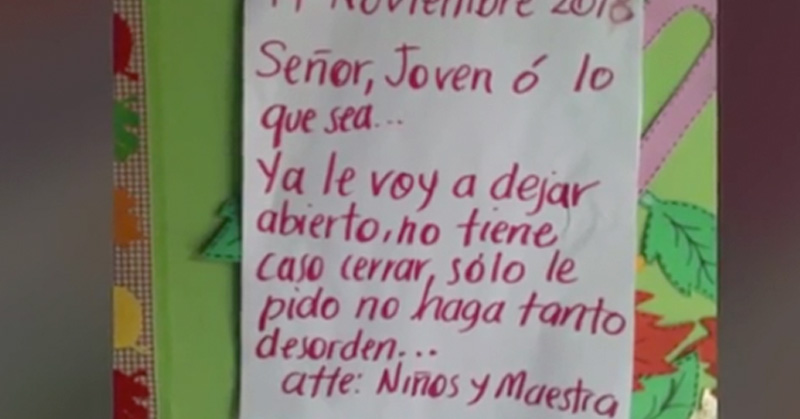 Noviembre 2018
Señor, Joven ó lo
que sea...
Ya le voy a dejar
abierto, no tiene
caso cerrar, sólo le
pido no haga tanto
desorden...
atte: Niños y Maestra